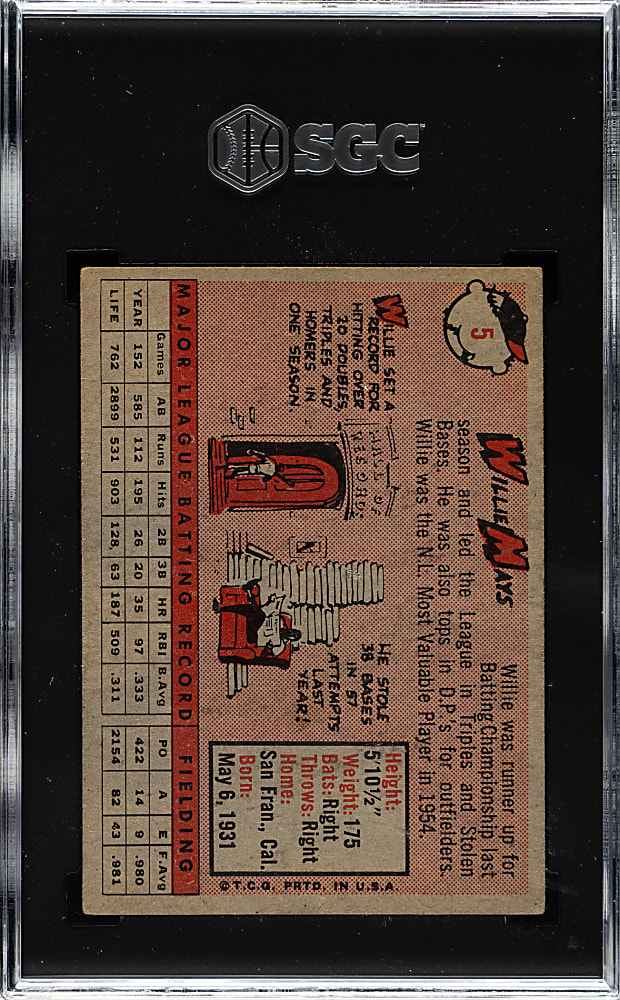 SGC
5
WILLIE MAYS
Willie was runner up for
Batting Championship last
season and led the League in Triples and Stolen
Bases. He was also tops in D.P.'s for outfielders.
Willie was the N.L. Most Valuable Player in 1954.
WILLIE SET A
RECORD FOR
HITTING OVER
20 DOUBLES,
TRIPLES AND
HOMERS IN
ONE SEASON.
HALL OF
RECORDS
HE STOLE
38 BASES
IN 57
ATTEMPTS
LAST
YEAR!
Height:
5'10½"
Weight: 175
Bats: Right
Throws: Right
Home:
San Fran., Cal.
Born:
May 6, 1931
© T.C.G. PRTD. IN U.S.A.
MAJOR LEAGUE BATTING RECORD FIELDING
Games AB Runs Hits 2B 3B HR RBI B.Avg PO A E F.Avg
YEAR 152 585 112 195 26 20 35 97 .333 422 14 9 .980
LIFE 762 2899 531 903 128 63 187 509 .311 2154 82 43 .981